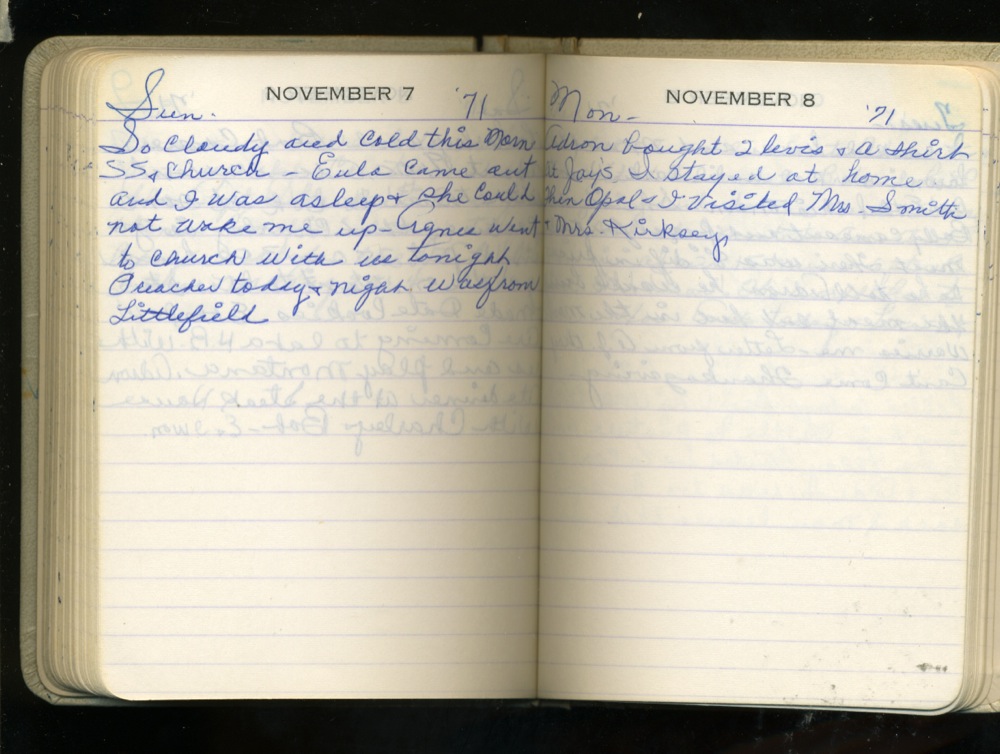 NOVEMBER 7
Sun. '71
So Cloudy and cold this Morn
SS & Church - Eula Came out
and I was asleep & she could
not wake me up - Agnes went
to church with us tonight
Preacher today & night was from
Littlefield
NOVEMBER 8
Mon - '71
Adron bought 2 levis & a shirt
At Jay's I stayed at home
then Opal & I visited Mrs. Smith
& Mrs. Kirksey